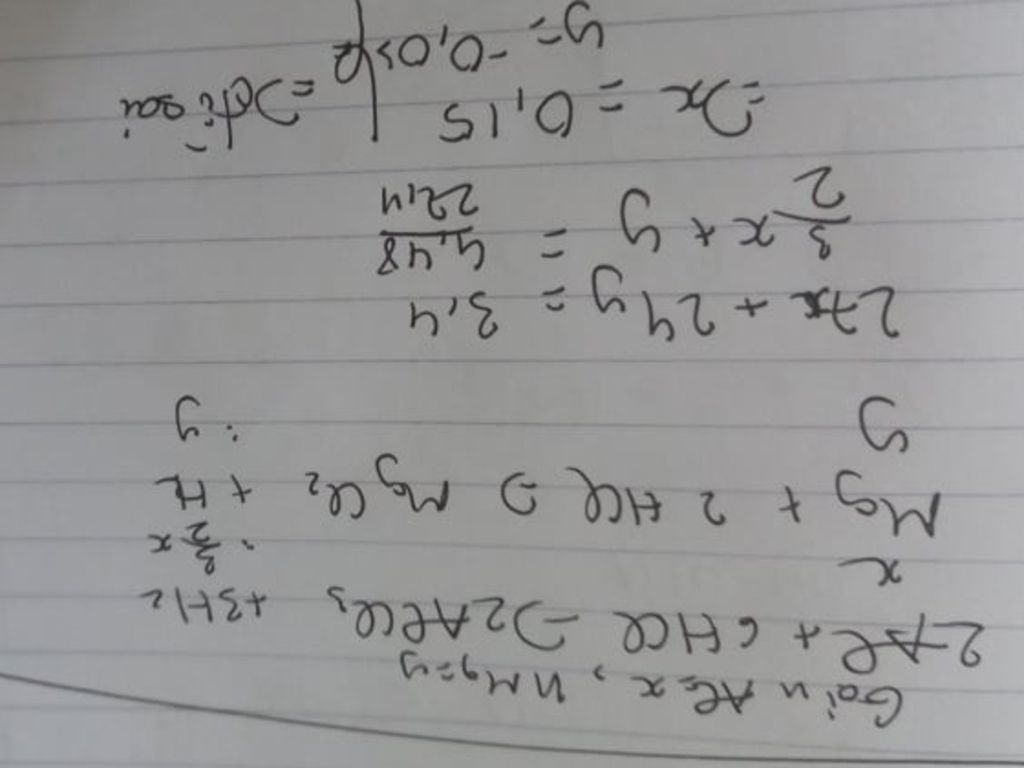 Gọi n Al = x, n Mg = y
2Al + 6HCl => 2AlCl3 + 3H2
x : 3/2 x
Mg + 2HCl => MgCl2 + H2
y : y
27x + 24y = 3,4
3/2 x + y = 4,48/22,4
=> x = 0,15
y = -0,03 => đề sai